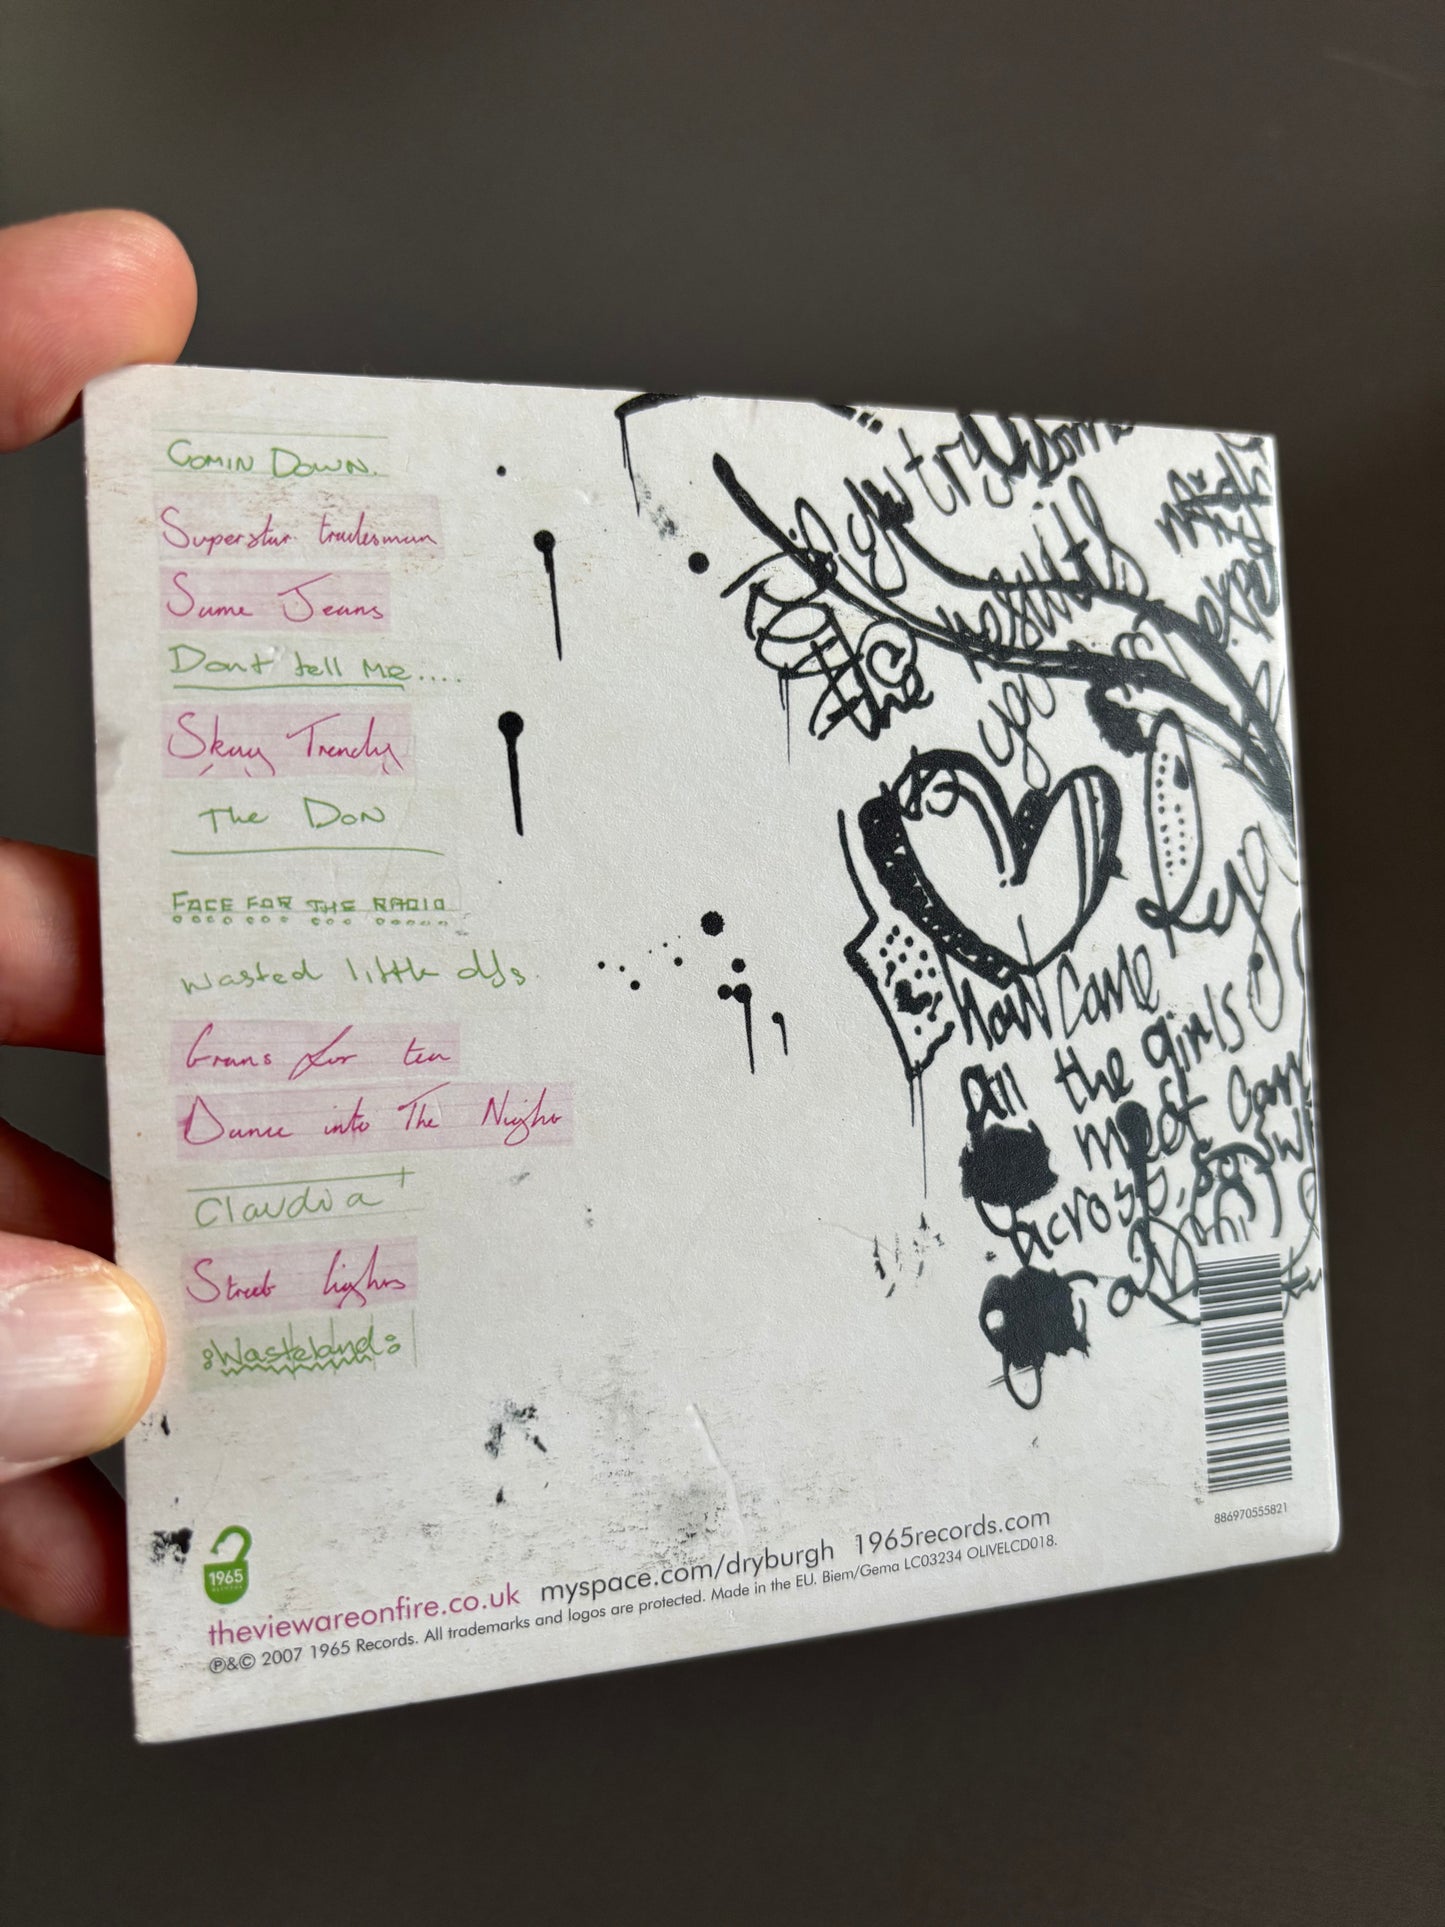 Comin Down.
Superstar tradesman
Same Jeans
Dont tell me....
Skag Trendy
The Don
FACE FOR THE RADIO
wasted little djs
Grans for tea
Dance into The Night
Claudia
Street lights
Wasteland
if you try
some
might
results
the
you
expect
how come
all the girls
meet
across
1965
theviewareonfire.co.uk myspace.com/dryburgh 1965records.com
℗&© 2007 1965 Records. All trademarks and logos are protected. Made in the EU. Biem/Gema LC03234 OLIVELCD018.
886970555821